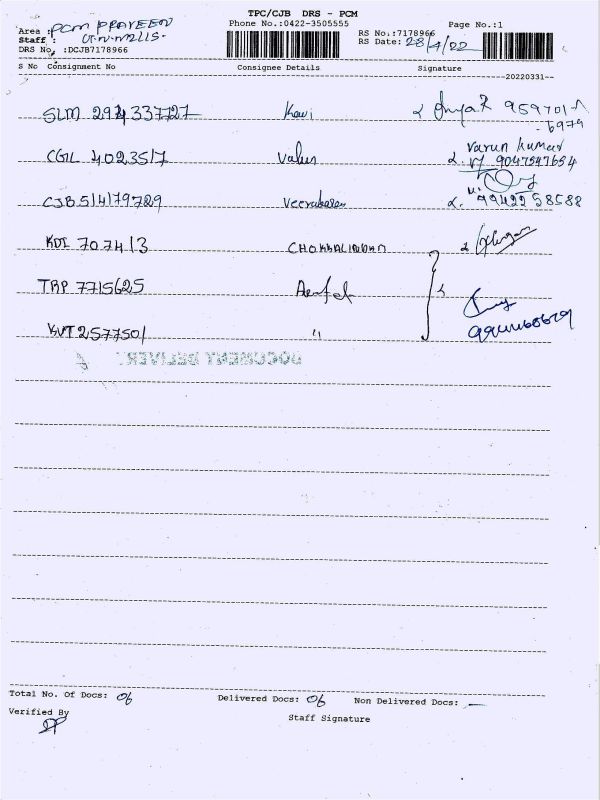 TPC/CJB DRS - PCM
Phone No.:0422-3505555 Page No.:1
Area : PCM PRAVEEN
Staff :
RS No.:7178966
DRS No. :DCJB7178966
RS Date: 28/4/22
S No Consignment No Consignee Details Signature
20220331
SLM 294337727 Kavi 959701
6979
CGIL 4023517 Valun Varun Kumar
9047547654
CJB514179729 Veerakaran 9942258588
KDI 707413 CHOKKALINGAM
TRP 7715625
KVT2577501 "
DOCUMENT DELIVER
Total No. Of Docs: 06 Delivered Docs: 06 Non Delivered Docs: —
Verified By
Staff Signature